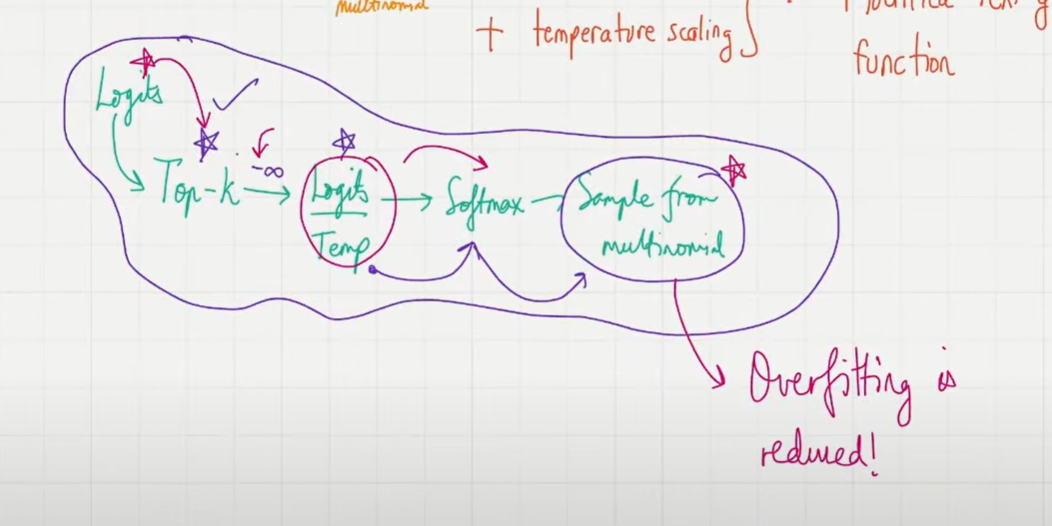 multinomial
+ temperature scaling
function
Logits
Top-k
-∞
Logits
Temp
Softmax
Sample from
multinomial
Overfitting is
reduced!